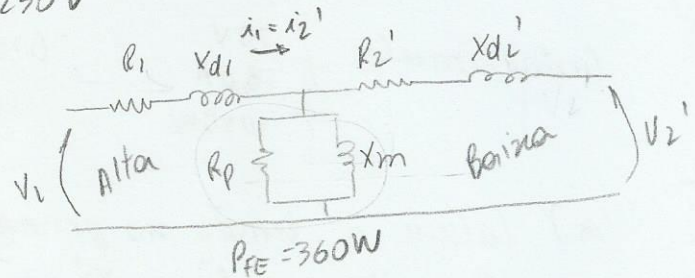 230V
i₁ = i₂'
R₁ Xd₁ R₂' Xd₂'
V₁ Alta Rp Xm Baixa V₂'
PFE = 360W